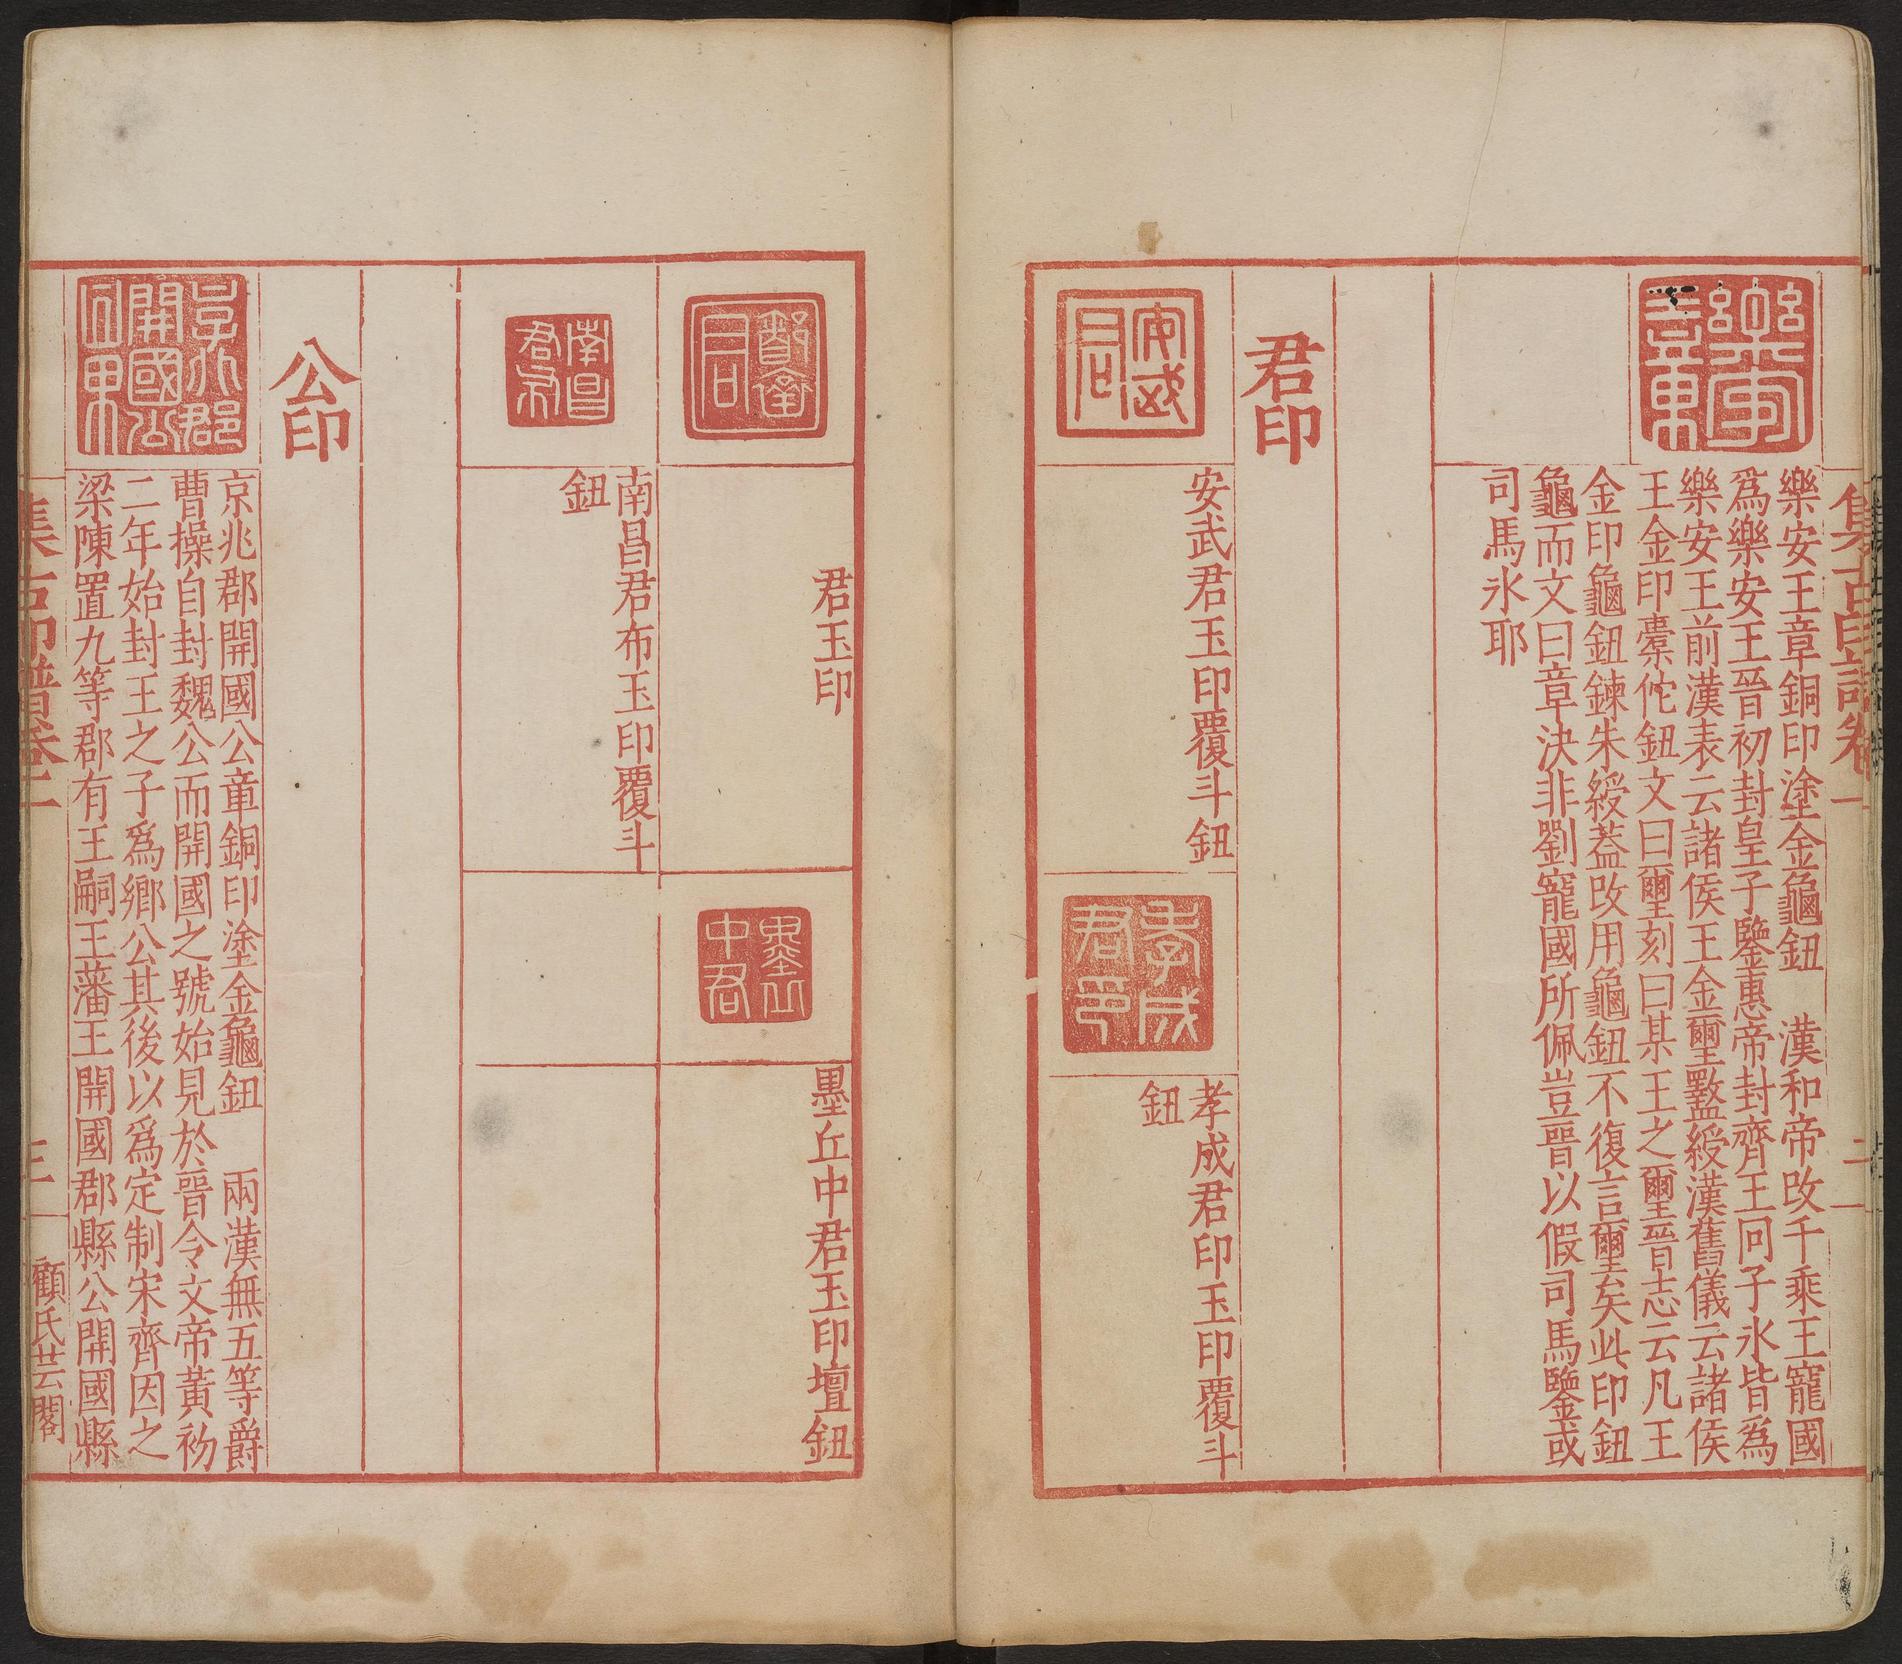 樂安王章
樂安王章銅印塗金龜鈕　漢和帝改千乘王寵國
爲樂安王晉初封皇子鑒惠帝封齊王冏子氷皆爲
樂安王前漢表云諸侯王金璽盭綬漢舊儀云諸侯
王金印槖佗鈕文曰璽刻曰某王之璽晉志云凡王
金印龜鈕鍊朱綬蓋改用龜鈕不復言璽矣此印鈕
龜而文曰章決非劉寵國所佩豈晉以假司馬鑒或
司馬氷耶
君印
安武君
安武君玉印覆斗鈕
孝成君印
孝成君印玉印覆斗
鈕
集古印譜卷一
二
君玉印
墨丘中君
墨丘中君玉印壇鈕
南昌君布
南昌君布玉印覆斗
鈕
公印
京兆郡開國公章
京兆郡開國公章銅印塗金龜鈕　兩漢無五等爵
曹操自封魏公而開國之號始見於晉令文帝黃初
二年始封王之子爲鄉公其後以爲定制宋齊因之
梁陳置九等郡有王嗣王藩王開國郡縣公開國縣
集古印譜卷一
三
顧氏芸閣